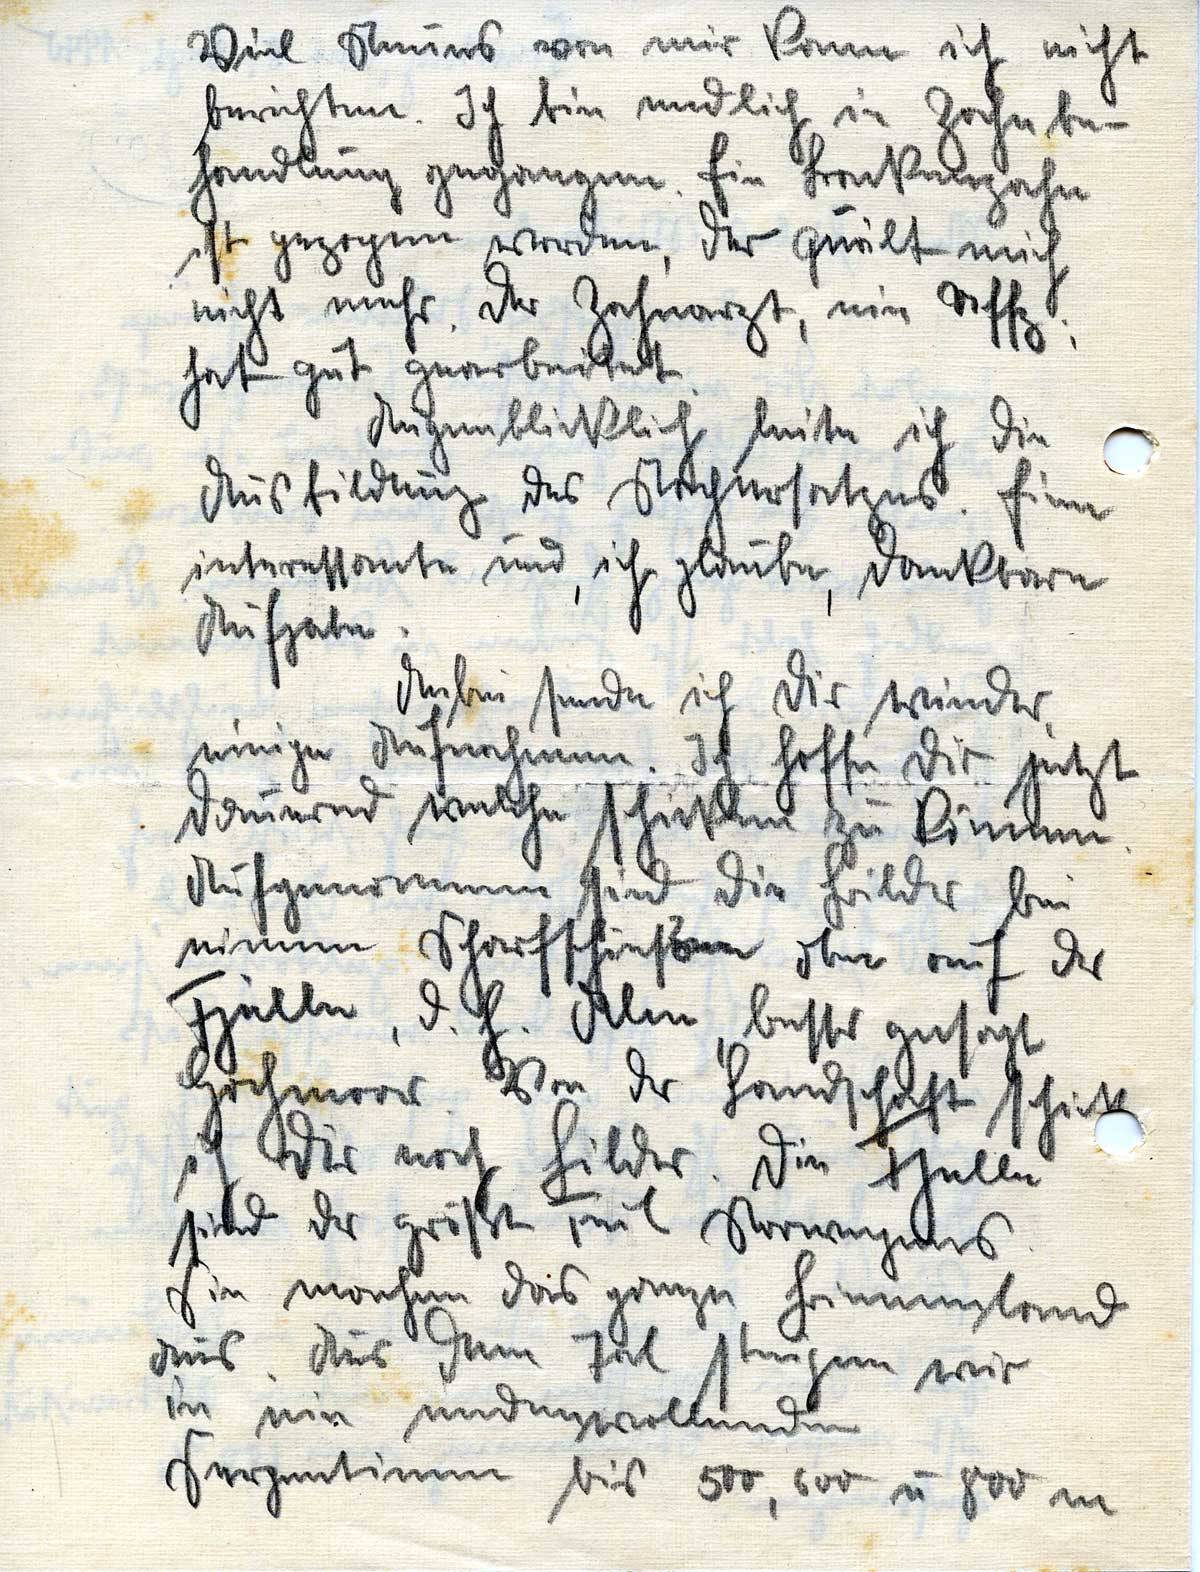 Viel Neues von mir kann ich nicht
berichten. Ich bin endlich in Zahnbe-
handlung gegangen. Ein Backenzahn
ist gezogen worden, der quält mich
nicht mehr. Der Zahnarzt, ein Uffz.,
hat gut gearbeitet.
Augenblicklich leite ich die
Ausbildung des Nachersatzes. Eine
interessante und, ich glaube, dankbare
Aufgabe.
Anbei sende ich Dir wieder
einige Aufnahmen. Ich hoffe Dir jetzt
dauernd welche schicken zu können.
Aufgenommen sind die Bilder bei
einem Scharfschießen oben auf der
Fjälle, d. h. Alm, besser gesagt
Hochmoor. Von der Landschaft schick
ich Dir noch Bilder. Die Fjelle
sind der größte Teil Norwegens.
Sie machen das ganze Binnenland
aus. Aus dem Tal steigen wir
in ein
Serpentinen bis 500, 600 u 800 m